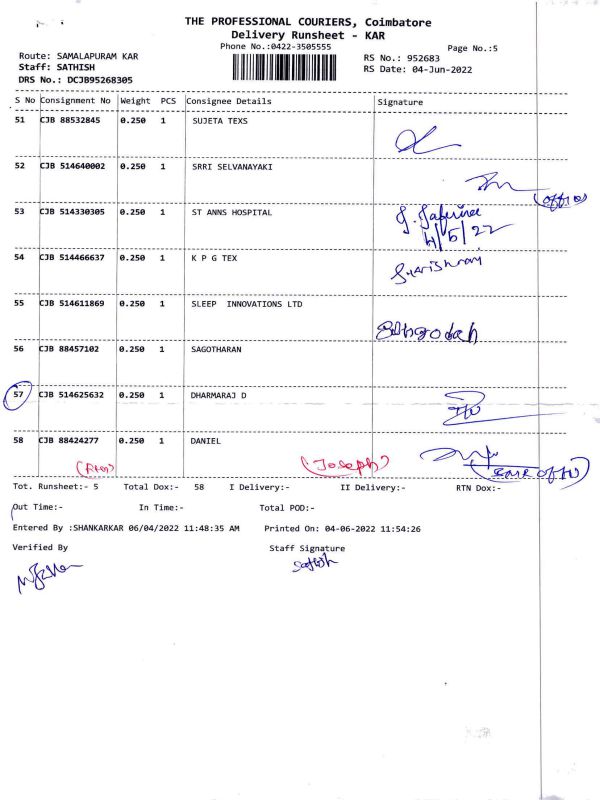 THE PROFESSIONAL COURIERS, Coimbatore
Delivery Runsheet - KAR
Phone No.:0422-3505555
Page No.:5
Route: SAMALAPURAM KAR
RS No.: 952683
Staff: SATHISH
RS Date: 04-Jun-2022
DRS No.: DCJB95268305
S No Consignment No Weight PCS Consignee Details Signature
51 CJB 88532845 0.250 1 SUJETA TEXS
52 CJB 514640002 0.250 1 SRRI SELVANAYAKI
(office)
53 CJB 514330305 0.250 1 ST ANNS HOSPITAL
4/5/22
54 CJB 514466637 0.250 1 K P G TEX
55 CJB 514611869 0.250 1 SLEEP INNOVATIONS LTD
56 CJB 88457102 0.250 1 SAGOTHARAN
57 CJB 514625632 0.250 1 DHARMARAJ D
58 CJB 88424277 0.250 1 DANIEL
(Joseph)
Tot. Runsheet:- 5 Total Dox:- 58 I Delivery:- II Delivery:- RTN Dox:-
Out Time:- In Time:- Total POD:-
Entered By :SHANKARKAR 06/04/2022 11:48:35 AM Printed On: 04-06-2022 11:54:26
Verified By Staff Signature
Sathish